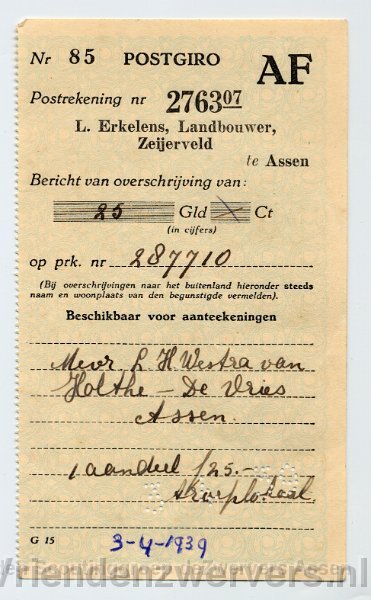 Nr 85 POSTGIRO AF
Postrekening nr 276307
L. Erkelens, Landbouwer,
Zeijerveld
te Assen
Bericht van overschrijving van:
25 Gld X Ct
(in cijfers)
op prk. nr 287710
(Bij overschrijvingen naar het buitenland hieronder steeds
naam en woonplaats van den begunstigde vermelden).
Beschikbaar voor aanteekeningen
Mevr L H Westra van
Holthe – De Vries
Assen.
1 aandeel f 25.-
troeplokaal
G 15
3-4-1939
Vriendenzwervers.nl